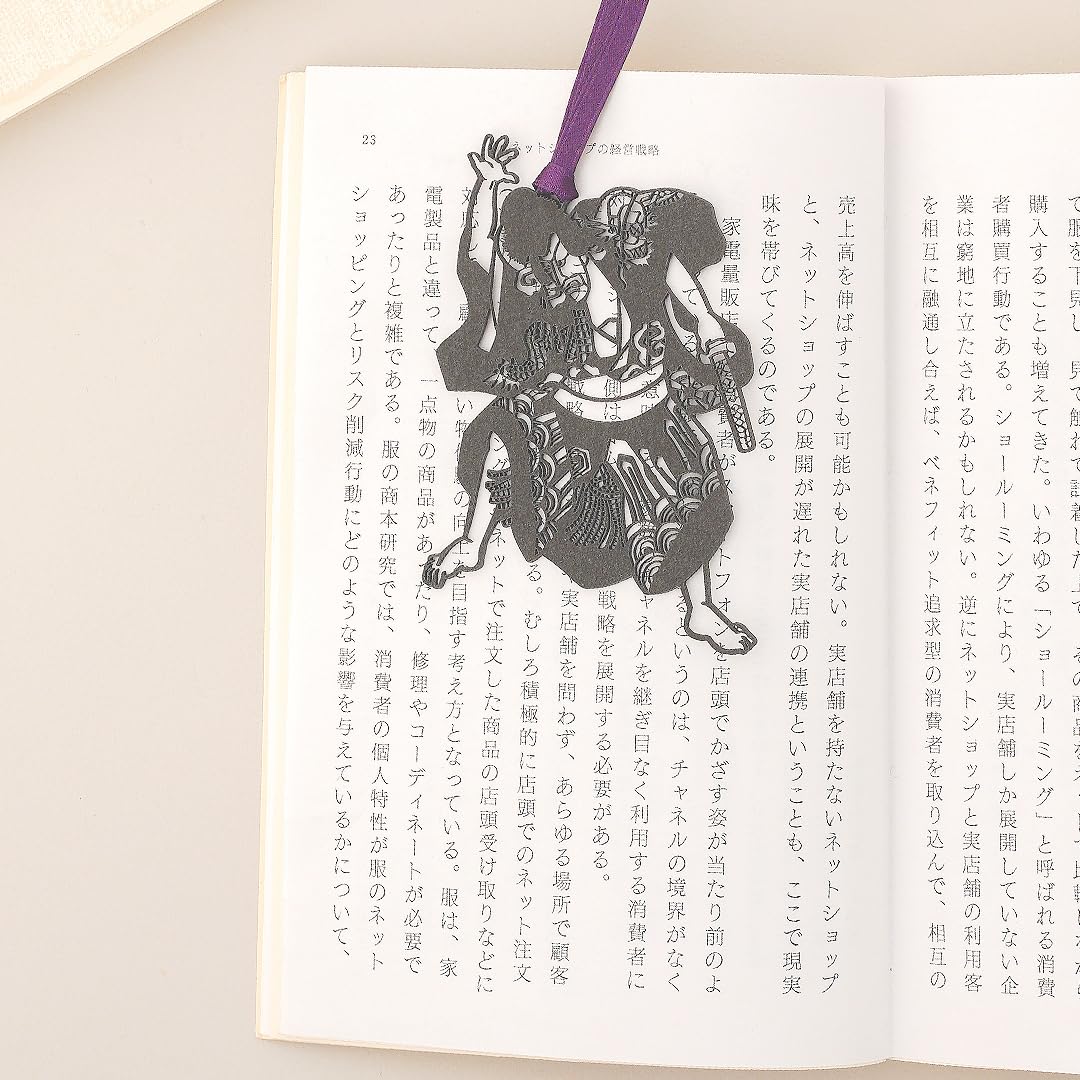 購入することも増えてきた。いわゆる「ショールーミング」と呼ばれる消費
者購買行動である。ショールーミングにより、実店舗しか展開していない企
業は窮地に立たされるかもしれない。逆にネットショップと実店舗の利用客
を相互に融通し合えば、ベネフィット追求型の消費者を取り込んで、相互の
23
ネットショップの経営戦略
売上高を伸ばすことも可能かもしれない。実店舗を持たないネットショップ
と、ネットショップの展開が遅れた実店舗の連携ということも、ここで現実
味を帯びてくるのである。
家電量販店 費者がス トフォンを店頭でかざす姿が当たり前のよ
て る というのは、チャネルの境界がなく
ャネルを継ぎ目なく利用する消費者に
側は 戦略を展開する必要がある。
戦略 実店舗を問わず、あらゆる場所で顧客
る。むしろ積極的に店頭でのネット注文
ネットで注文した商品の店頭受け取りなどに
対 い物 の向上を目指す考え方となっている。服は、家
電製品と違って、一点物の商品があったり、修理やコーディネートが必要で
あったりと複雑である。服の商本研究では、消費者の個人特性が服のネット
ショッピングとリスク削減行動にどのような影響を与えているかについて、